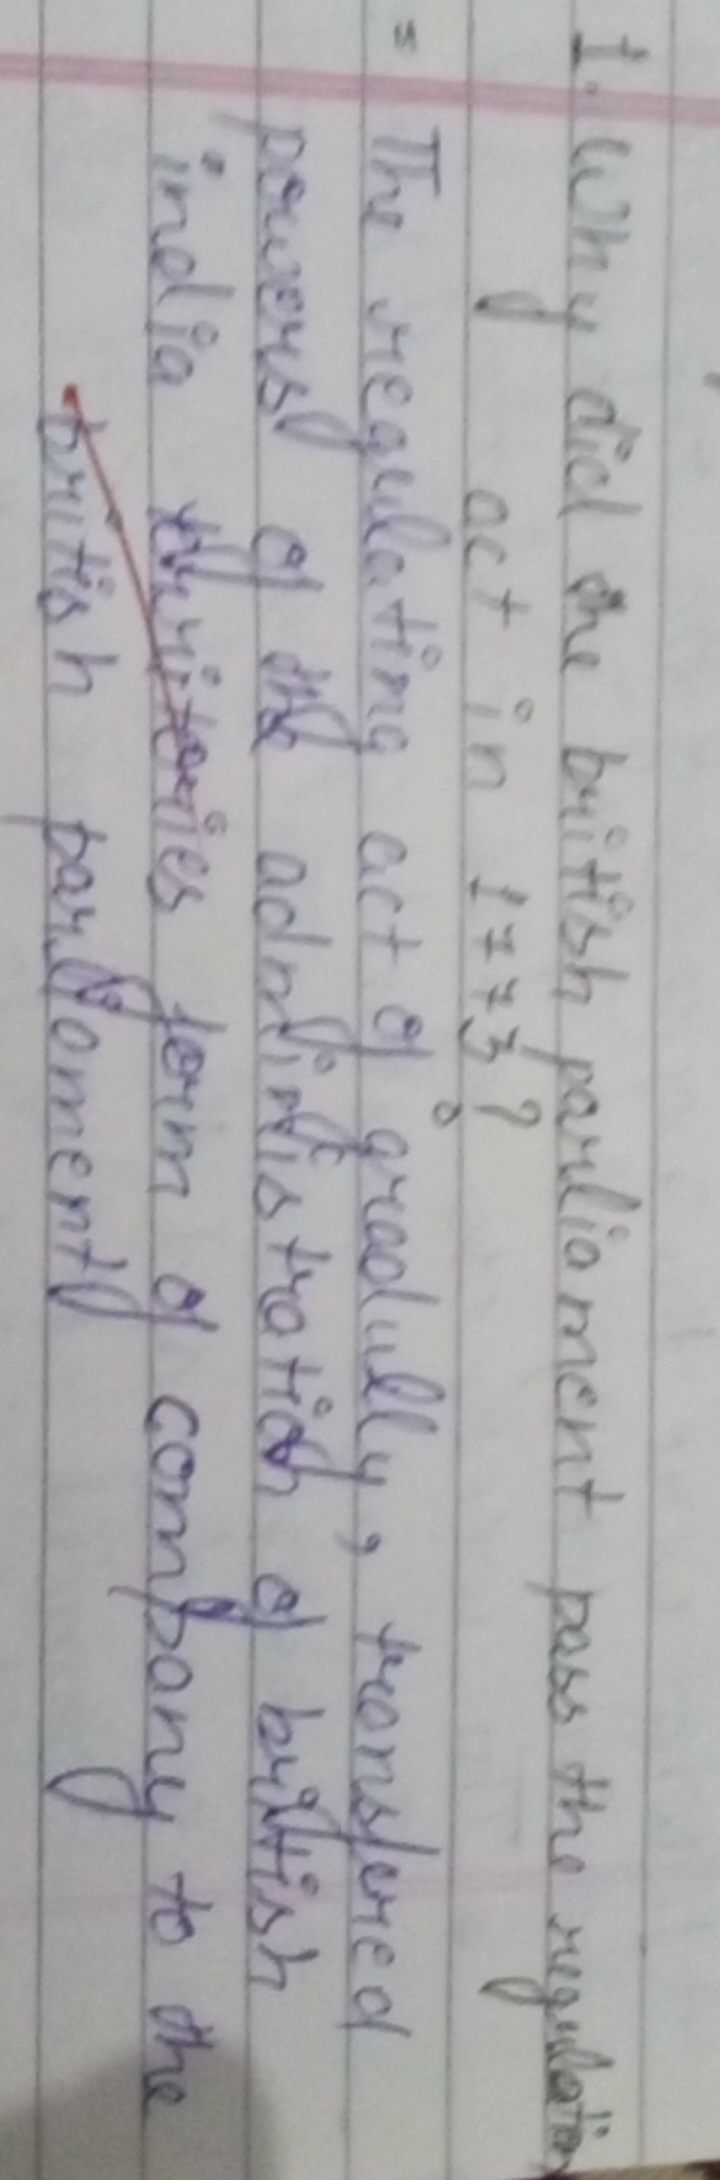 1. Why did the british parliament pass the regulation
act in 1773?
= The regulating act of gradully, transfered
powers of the adminfistration of british
india thuritories form of company to the
british parlioment